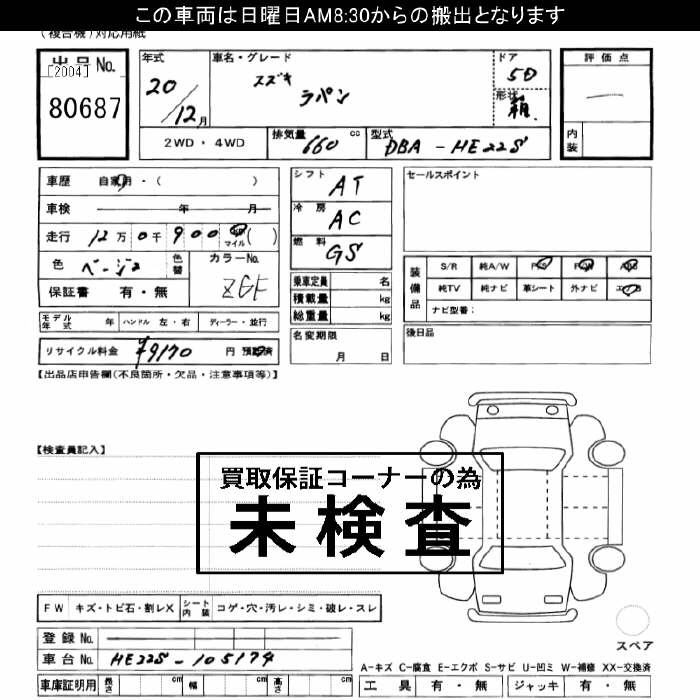 この車両は日曜日AM8:30からの搬出となります
(複合機)対応用紙
出品No.
[2004]
80687
年式
20/12月
車名・グレード
スズキ
ラパン
ドア
5D
形状
箱
評価点
—
内装
2WD・4WD
排気量
660 cc
型式
DBA-HE22S
車歴 自家用・( )
車検 年 月
走行 12万0千900 km マイル( )
色 ベージュ
色替
カラーNo.
ZGF
保証書 有・無
シフト AT
冷房 AC
燃料 GS
乗車定員 名
積載量 kg
総重量 kg
セールスポイント
装備品
S/R 純A/W P/S P/W ABS
純TV 純ナビ 革シート 外ナビ エアB
ナビ型番:
モデル年式 年 ハンドル 左・右 ディーラー・並行
名変期限
月 日
後日品
リサイクル料金 ¥9170 円 預託済
【出品店申告欄(不良箇所・欠品・注意事項等)】
【検査員記入】
買取保証コーナーの為
未検査
FW キズ・トビ石・割レX シート内装 コゲ・穴・汚レ・シミ・破レ・スレ
登録No.
車台No. HE22S-105174
車庫証明用 長さ cm 幅 cm 高さ cm
スペア
A-キズ C-腐食 E-エクボ S-サビ U-凹ミ W-補修 XX-交換済
工具 有・無 ジャッキ 有・無